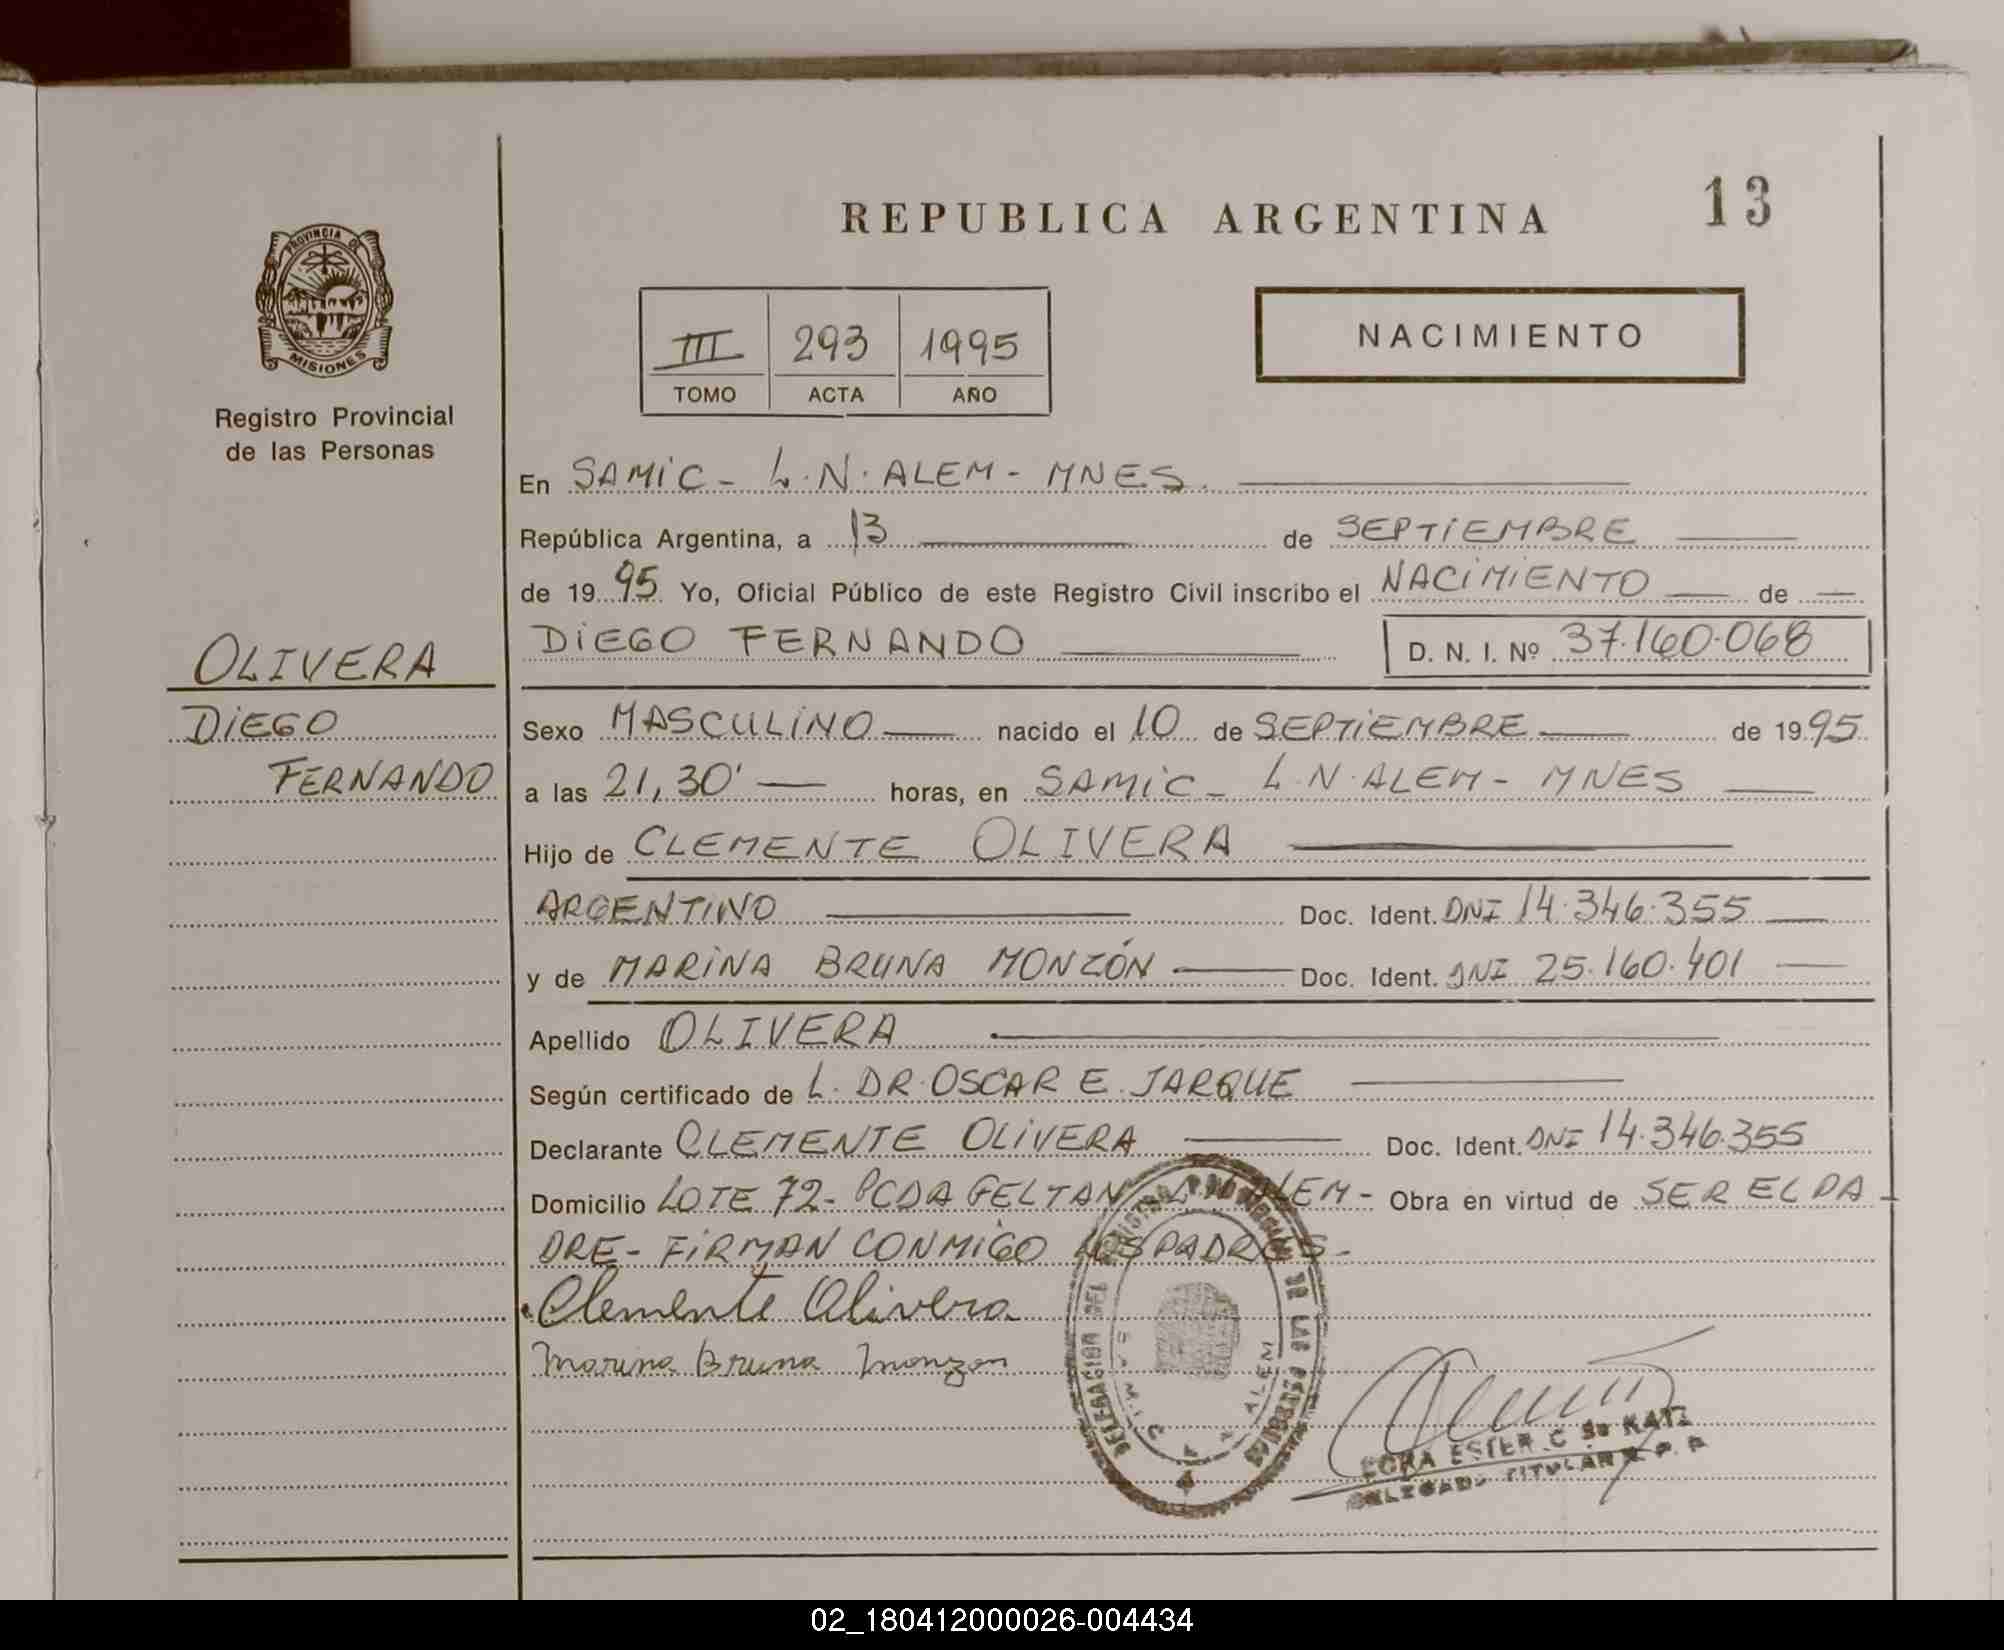 REPUBLICA ARGENTINA
13
PROVINCIA DE
MISIONES
Registro Provincial
de las Personas
III 293 1995
TOMO ACTA AÑO
NACIMIENTO
En SAMIC - L.N. ALEM - MNES.
República Argentina, a 13 de SEPTIEMBRE
de 1995 Yo, Oficial Público de este Registro Civil inscribo el NACIMIENTO de
DIEGO FERNANDO D. N. I. Nº 37.160.068
OLIVERA
DIEGO
FERNANDO
Sexo MASCULINO nacido el 10 de SEPTIEMBRE de 1995
a las 21,30' horas, en SAMIC - L.N. ALEM - MNES
Hijo de CLEMENTE OLIVERA
ARGENTINO Doc. Ident. DNI 14.346.355
y de MARINA BRUNA MONZÓN Doc. Ident. DNI 25.160.401
Apellido OLIVERA
Según certificado de L. DR. OSCAR E. JARQUE
Declarante CLEMENTE OLIVERA Doc. Ident. DNI 14.346.355
Domicilio LOTE 72 - PCDA GELTAN ALEM - Obra en virtud de SER EL PA
DRE - FIRMAN CONMIGO LOS PADRES -
Clemente Olivera
Marina Bruna Monzon
DELEGACION DEL REGISTRO PROVINCIAL DE LAS PERSONAS
SAMIC ALEM
ESTER C de KATZ
DELEGADO TITULAR R. P. P.
02_180412000026-004434